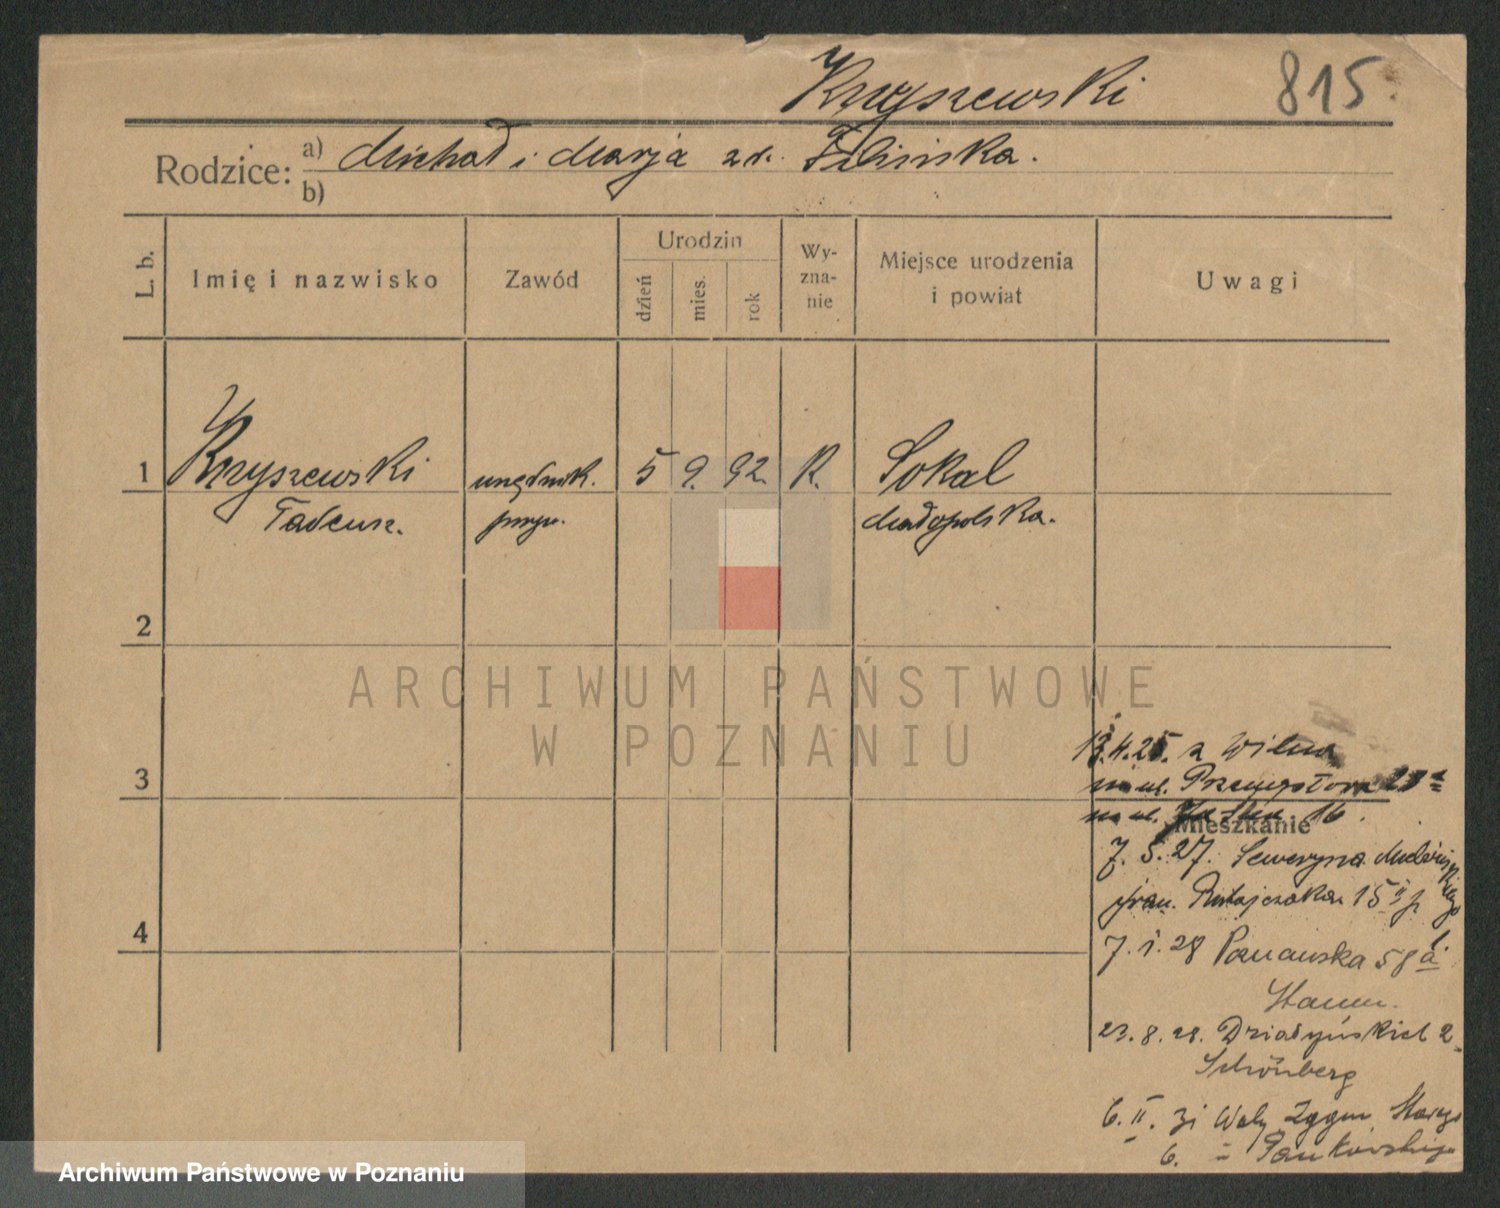 Kryszewski 815.
Rodzice: a) Michał i Marja zd. Filińska.
b)
L. b. Imię i nazwisko Zawód Urodzin dzień mies. rok Wy-zna-nie Miejsce urodzenia i powiat Uwagi
1 Kryszewski urzędnik. 5 9. 92. R. Sokal
Tadeusz. pryw. Małopolska.
2
ARCHIWUM PAŃSTWOWE
W POZNANIU
3
13.4.25. z Wilna
na ul. Przemysłowa
na ul. 16.
Mieszkanie
7. 5. 27. Seweryna Mielżyńskiego
fran. Ratajczaka 15 II p
4
7. 1. 28 Poznańska 58 a
23. 8. 28. Działyńskich 2
Schönberg
6. II. 31 Wały Zygm Starego
6. Pankowskiego
Archiwum Państwowe w Poznaniu